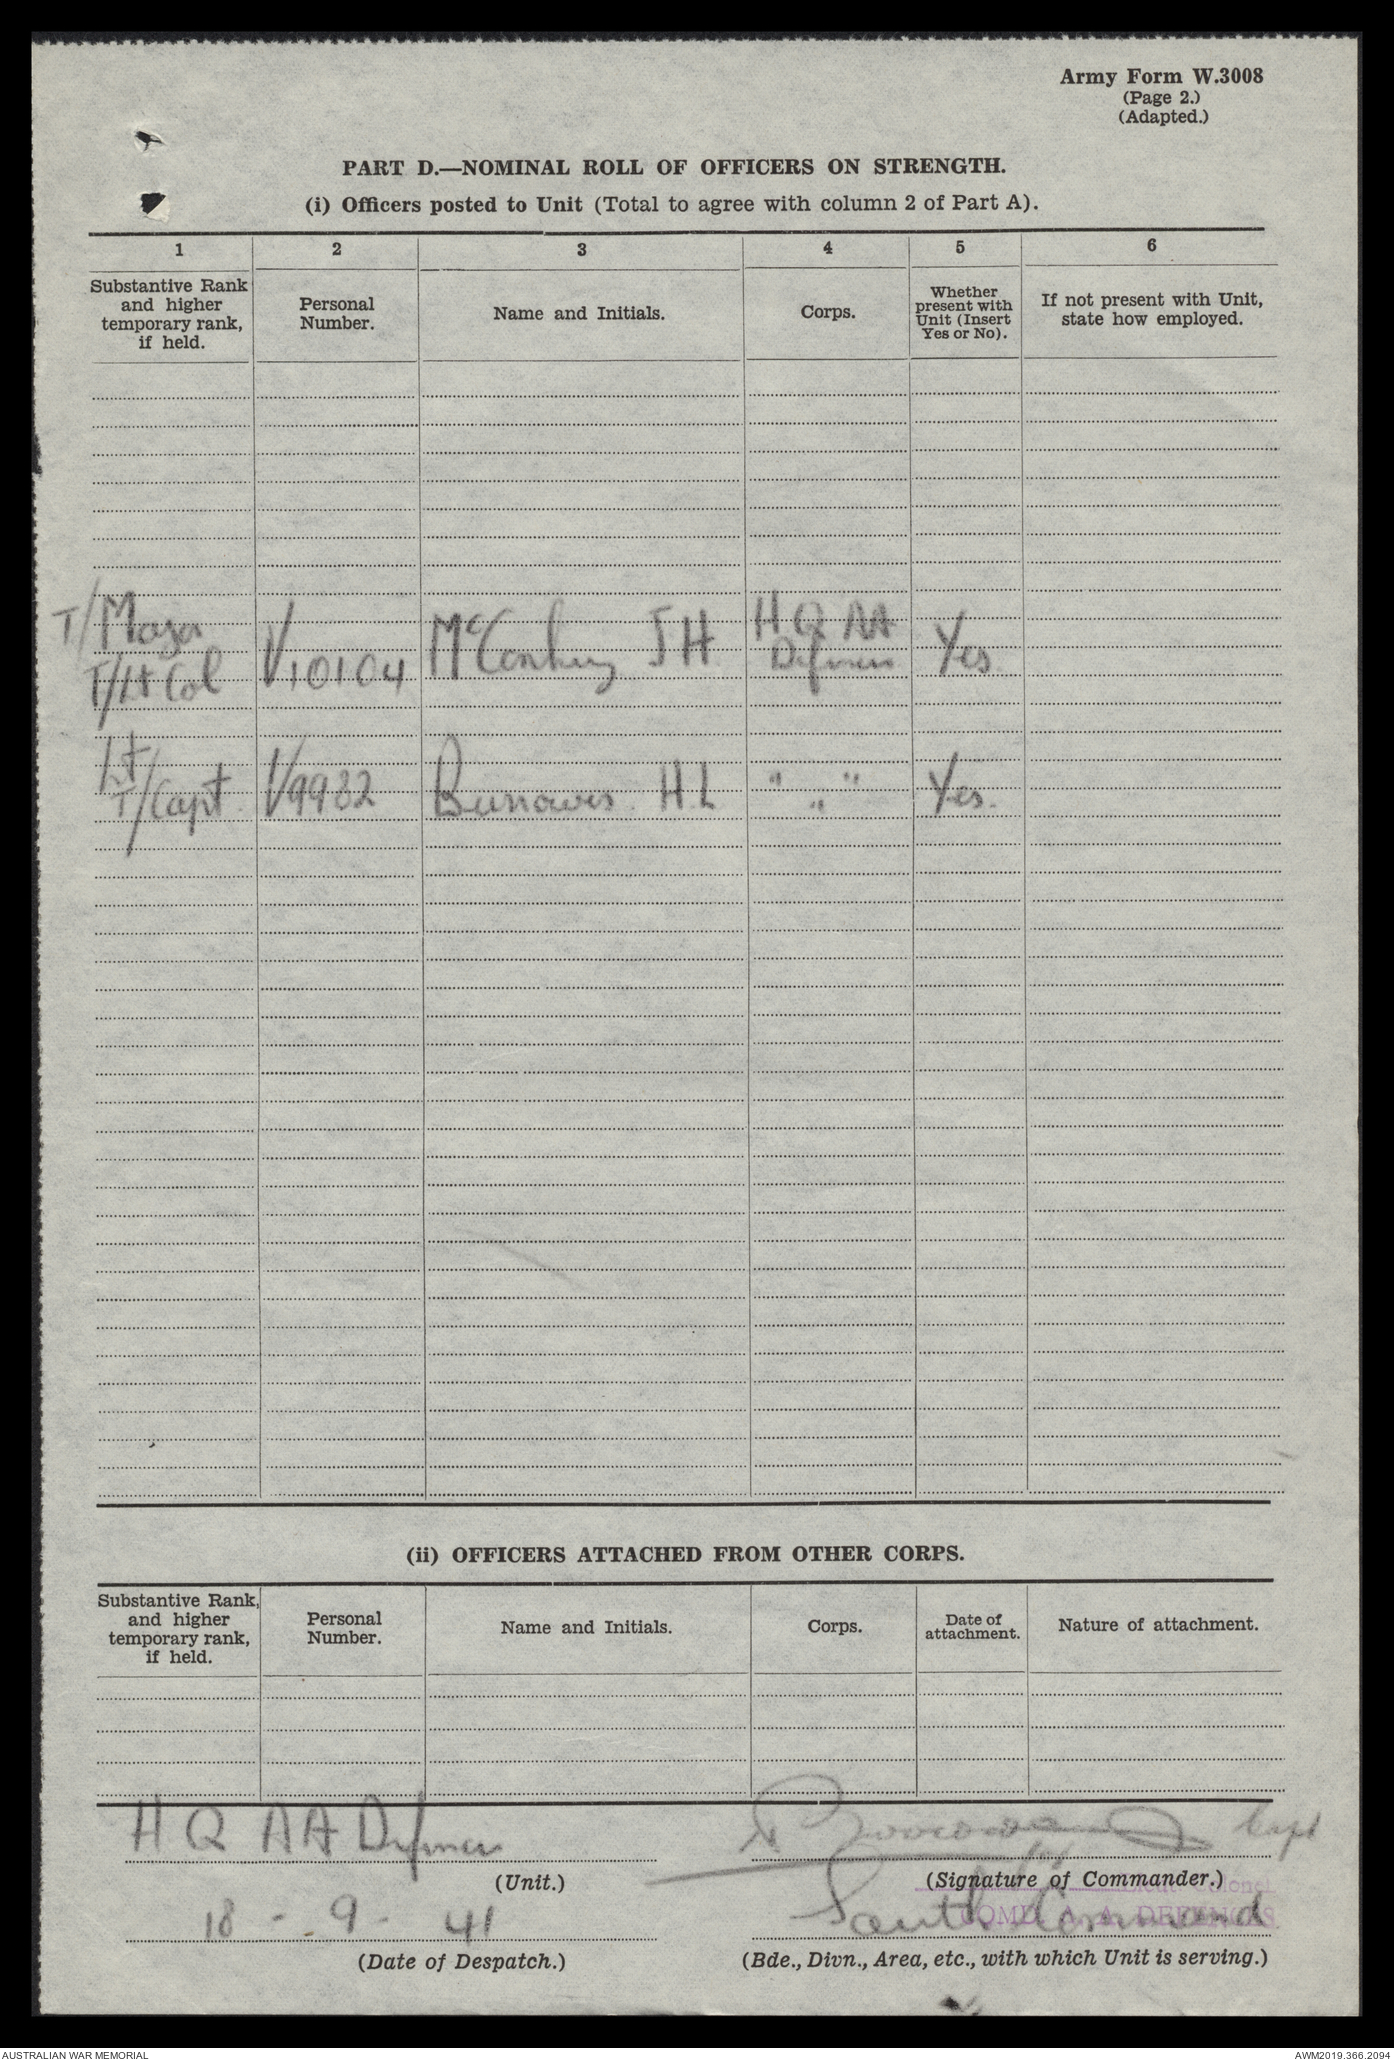 Army Form W.3008
(Page 2.)
(Adapted.)
PART D.—NOMINAL ROLL OF OFFICERS ON STRENGTH.
(i) Officers posted to Unit (Total to agree with column 2 of Part A).
1 2 3 4 5 6
Substantive Rank and higher temporary rank, if held.
Personal Number.
Name and Initials.
Corps.
Whether present with Unit (Insert Yes or No).
If not present with Unit, state how employed.
T/Major
T/Lt Col V10104 McConkey J H H Q AA Defences Yes
Lt
T/Capt. V9982 Burrowes H.L " " " Yes.
(ii) OFFICERS ATTACHED FROM OTHER CORPS.
Substantive Rank, and higher temporary rank, if held.
Personal Number.
Name and Initials.
Corps.
Date of attachment.
Nature of attachment.
H Q AA Defences
Capt
(Unit.)
(Signature of Commander.)
Lieut-Colonel
COMD. A. A. DEFENCES.
18 - 9 - 41
South Command
(Date of Despatch.)
(Bde., Divn., Area, etc., with which Unit is serving.)
AUSTRALIAN WAR MEMORIAL
AWM2019.366.2094